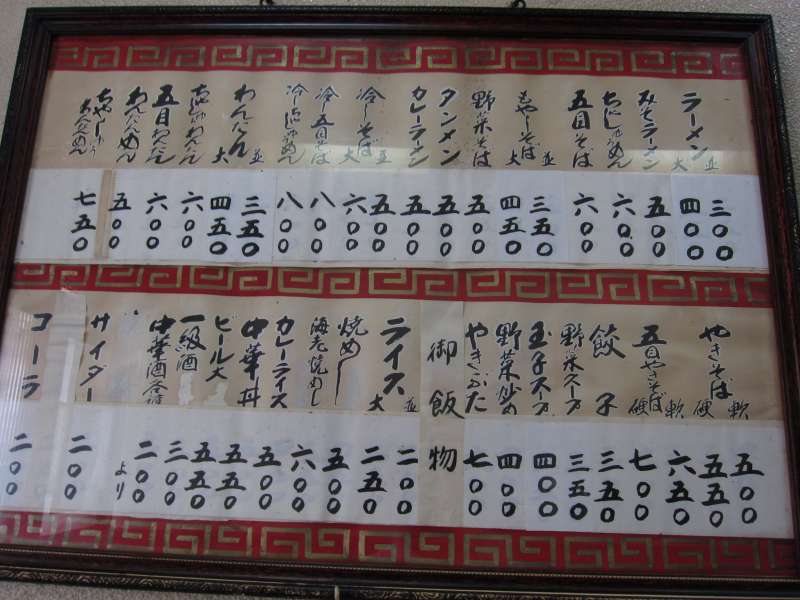 ラーメン 並 三〇〇
大 四〇〇
みそラーメン 五〇〇
ちゃしゅめん 六〇〇
五目そば 六〇〇
もやしそば 並 三五〇
大 四五〇
野菜そば 五〇〇
タンメン 五〇〇
カレーラーメン 五〇〇
冷しそば 並 五〇〇
大 六〇〇
冷五目そば 八〇〇
冷しちゃしゅめん 八〇〇
わんたん 並 三五〇
大 四五〇
ちゃしゅわんたん 六〇〇
五目わんたん 六〇〇
わんたんめん 五〇〇
ちゃーしゅう
わんたんめん 七五〇
やきそば 軟 五〇〇
硬 五五〇
五目やきそば 軟 六五〇
硬 七〇〇
餃子 三五〇
野菜スープ 三五〇
玉子スープ 四〇〇
野菜炒め 四〇〇
やきぶた 七〇〇
御飯物
ライス 並 二〇〇
大 二五〇
焼めし 五〇〇
海老焼めし 六〇〇
カレーライス 五〇〇
中華丼 五五〇
ビール大 五五〇
一級酒 三〇〇
中華酒各種 二〇〇より
サイダー 二〇〇
コーラ 二〇〇